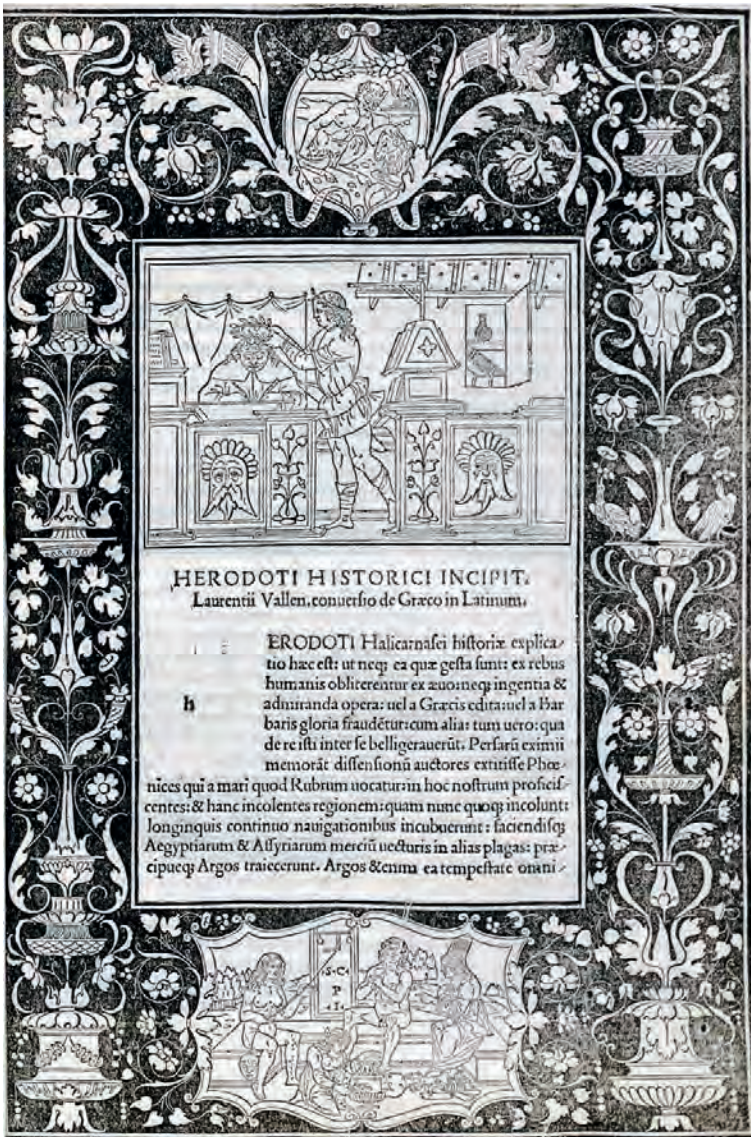 HERODOTI HISTORICI INCIPIT.
Laurentii Vallen. conuersio de Græco in Latinum.
ERODOTI Halicarnasei historiæ explica-
tio hæc est: ut neq; ea quæ gesta sunt: ex rebus
humanis obliterentur ex æuo: neq; ingentia &
h
admiranda opera: uel a Græcis edita: uel a Bar
baris gloria fraudētur: cum alia: tum uero: qua
de re isti inter se belligerauerūt. Persarū eximii
memorāt dissensionū auctores extitisse Phœ-
nices qui a mari quod Rubrum uocatur: in hoc nostrum proficis-
centes: & hanc incolentes regionem: quam nunc quoq; incolunt:
longinquis continuo nauigationibus incubuerunt: faciendisq;
Aegyptiarum & Assyriarum merciū uecturis in alias plagas: præ-
cipueq; Argos traiecerunt. Argos &enim ea tempestate omni-
S·C·
P
I·